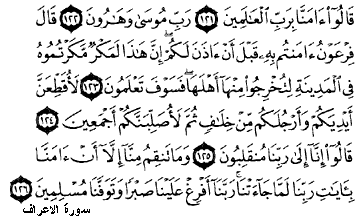 قَالُوٓا۟ ءَامَنَّا بِرَبِّ ٱلْعَٰلَمِينَ ١٢١ رَبِّ مُوسَىٰ وَهَٰرُونَ ١٢٢ قَالَ
فِرْعَوْنُ ءَامَنتُم بِهِۦ قَبْلَ أَنْ ءَاذَنَ لَكُمْ ۖ إِنَّ هَٰذَا لَمَكْرٌ مَّكَرْتُمُوهُ
فِى ٱلْمَدِينَةِ لِتُخْرِجُوا۟ مِنْهَآ أَهْلَهَا ۖ فَسَوْفَ تَعْلَمُونَ ١٢٣ لَأُقَطِّعَنَّ
أَيْدِيَكُمْ وَأَرْجُلَكُم مِّنْ خِلَٰفٍ ثُمَّ لَأُصَلِّبَنَّكُمْ أَجْمَعِينَ ١٢٤
قَالُوٓا۟ إِنَّآ إِلَىٰ رَبِّنَا مُنقَلِبُونَ ١٢٥ وَمَا تَنقِمُ مِنَّآ إِلَّآ أَنْ ءَامَنَّا
بِـَٔايَٰتِ رَبِّنَا لَمَّا جَآءَتْنَا ۚ رَبَّنَآ أَفْرِغْ عَلَيْنَا صَبْرًا وَتَوَفَّنَا مُسْلِمِينَ ١٢٦
سورة الاعراف